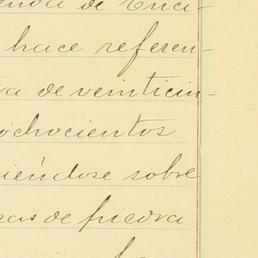 enda de Enca-
hace referen-
a de veinticin-
ochocientos
iéndose sobre
as de piedra